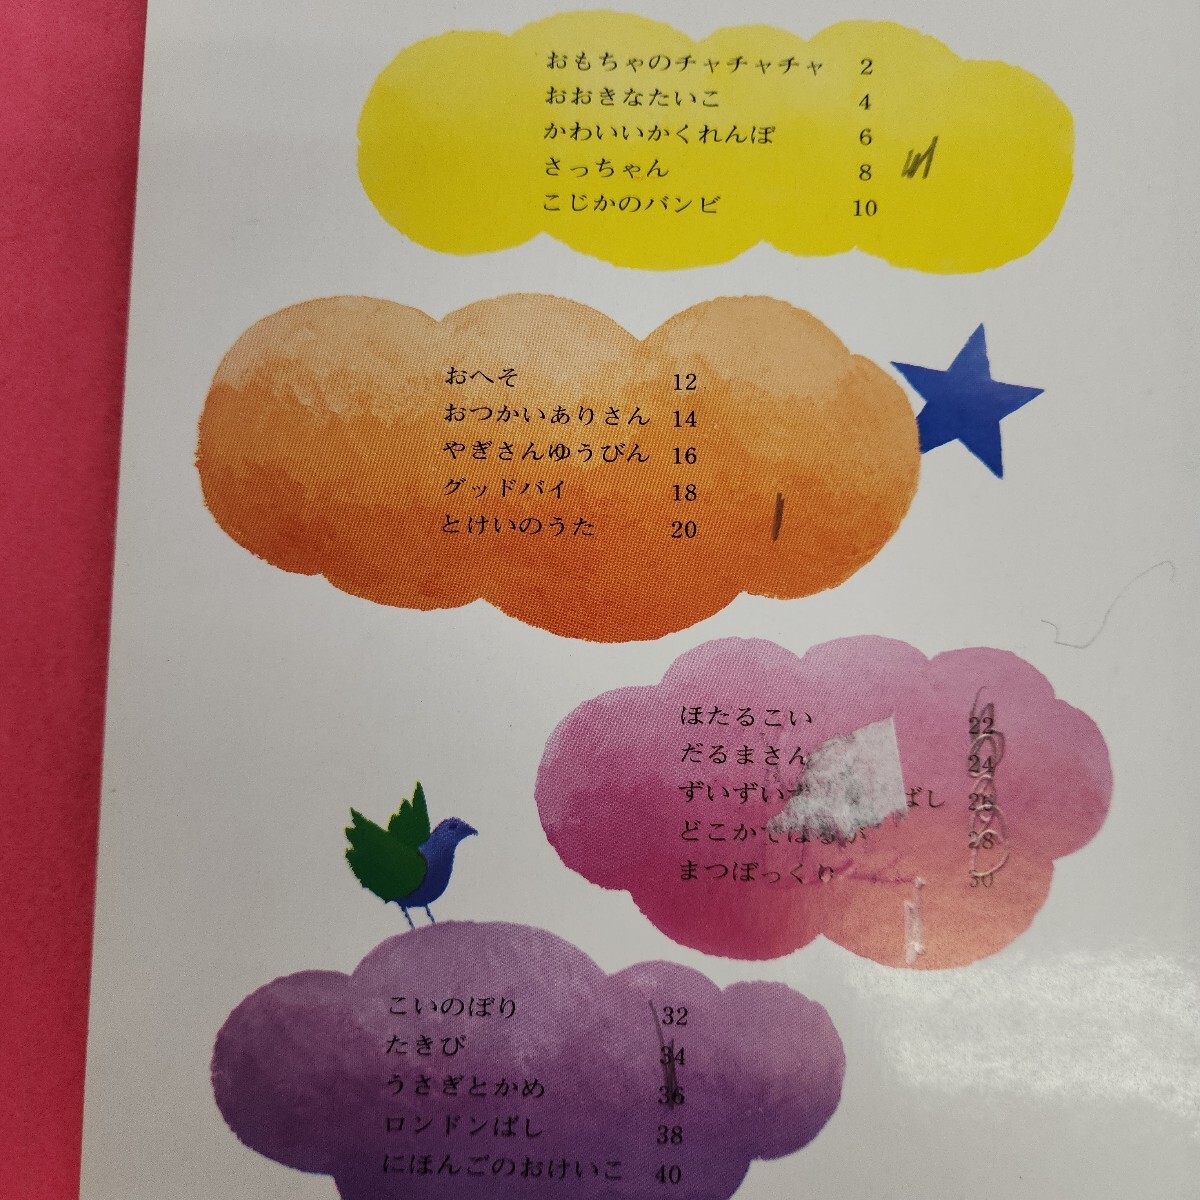 おもちゃのチャチャチャ 2
おおきなたいこ 4
かわいいかくれんぼ 6
さっちゃん 8
こじかのバンビ 10
おへそ 12
おつかいありさん 14
やぎさんゆうびん 16
グッドバイ 18
とけいのうた 20
ほたるこい 22
だるまさん 24
ずいずいず ばし 26
どこかではるが 28
まつぼっくり 30
こいのぼり 32
たきび 34
うさぎとかめ 36
ロンドンばし 38
にほんごのおけいこ 40